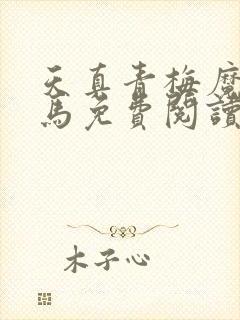 天真青梅魔
馬免費閱讀
木子心